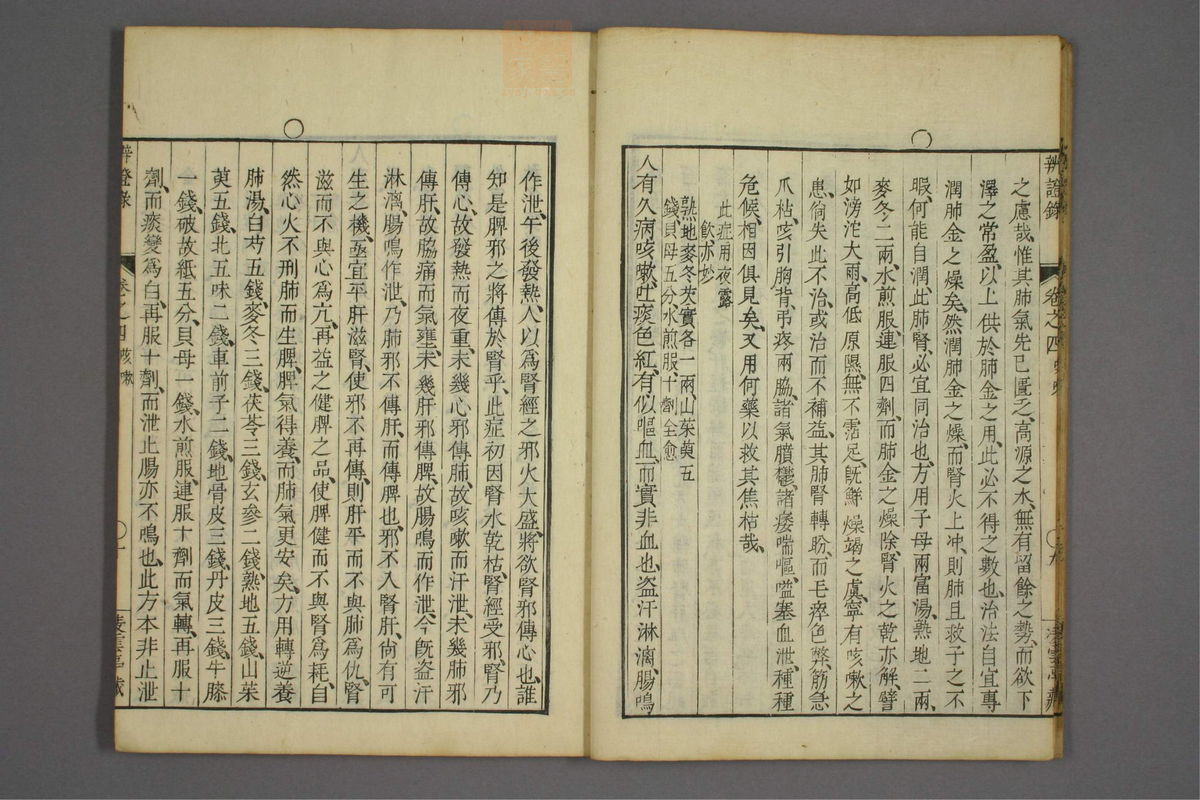 辨證錄 卷之四 咳嗽
之慮哉惟其肺氣先已匱乏、高源之水、無有留餘之勢、而欲下
澤之常盈、以上供於肺金之用、此必不得之數也、治法自宜專
潤肺金之燥矣、然潤肺金之燥、而腎火上冲、則肺且救子之不
暇、何能自潤、此肺腎必宜同治也、方用子母兩富湯、熟地二兩、
麥冬二兩、水煎服、連服四劑、而肺金之燥除、腎火之乾亦解、譬
如滂沱大雨、高低原隰、無不霑足、旣鮮燥竭之虞、寧有咳嗽之
患、倘失此不治、或治而不補益、其肺腎、轉盼而毛瘁色弊、筋急
爪枯、咳引胸背、弔疼兩脇、諸氣膹鬱、諸痿喘嘔、嗌塞血泄、種種
危候、相因俱見矣、又用何藥以救其焦枯哉、
此症用夜露
飲亦妙
熟地麥冬芡實各一兩、山茱萸五
錢、貝母五分、水煎服、十劑全愈
人有久病咳嗽、吐痰色紅、有似嘔血、而實非血也、盜汗淋漓、腸鳴
作泄、午後發熱、人以爲腎經之邪火大盛、將欲腎邪傳心也、誰
知是脾邪之將傳於腎乎、此症初因腎水乾枯、腎經受邪、腎乃
傳心、故發熱而夜重、未幾心邪傳肺、故咳嗽而汗泄、未幾肺邪
傳肝、故脇痛而氣壅、未幾肝邪傳脾、故腸鳴而作泄、今旣盜汗
淋漓、腸鳴作泄、乃肺邪不傳肝、而傳脾也、邪不入腎肝、尙有可
生之機、亟宜平肝滋腎、使邪不再傳、則肝平而不與肺爲仇、腎
滋而不與心爲亢、再益之健脾之品、使脾健而不與腎爲耗、自
然心火不刑肺而生脾、脾氣得養而肺氣更安矣、方用轉逆養
肺湯、白芍五錢、麥冬三錢、茯苓三錢、玄參二錢、熟地五錢、山茱
萸五錢、北五味二錢、車前子二錢、地骨皮三錢、丹皮三錢、牛膝
一錢、破故紙五分、貝母一錢、水煎服、連服十劑而氣轉、再服十
劑、而痰變爲白、再服十劑、而泄止腸亦不鳴也、此方本非止泄
辨證錄 卷之四 咳嗽